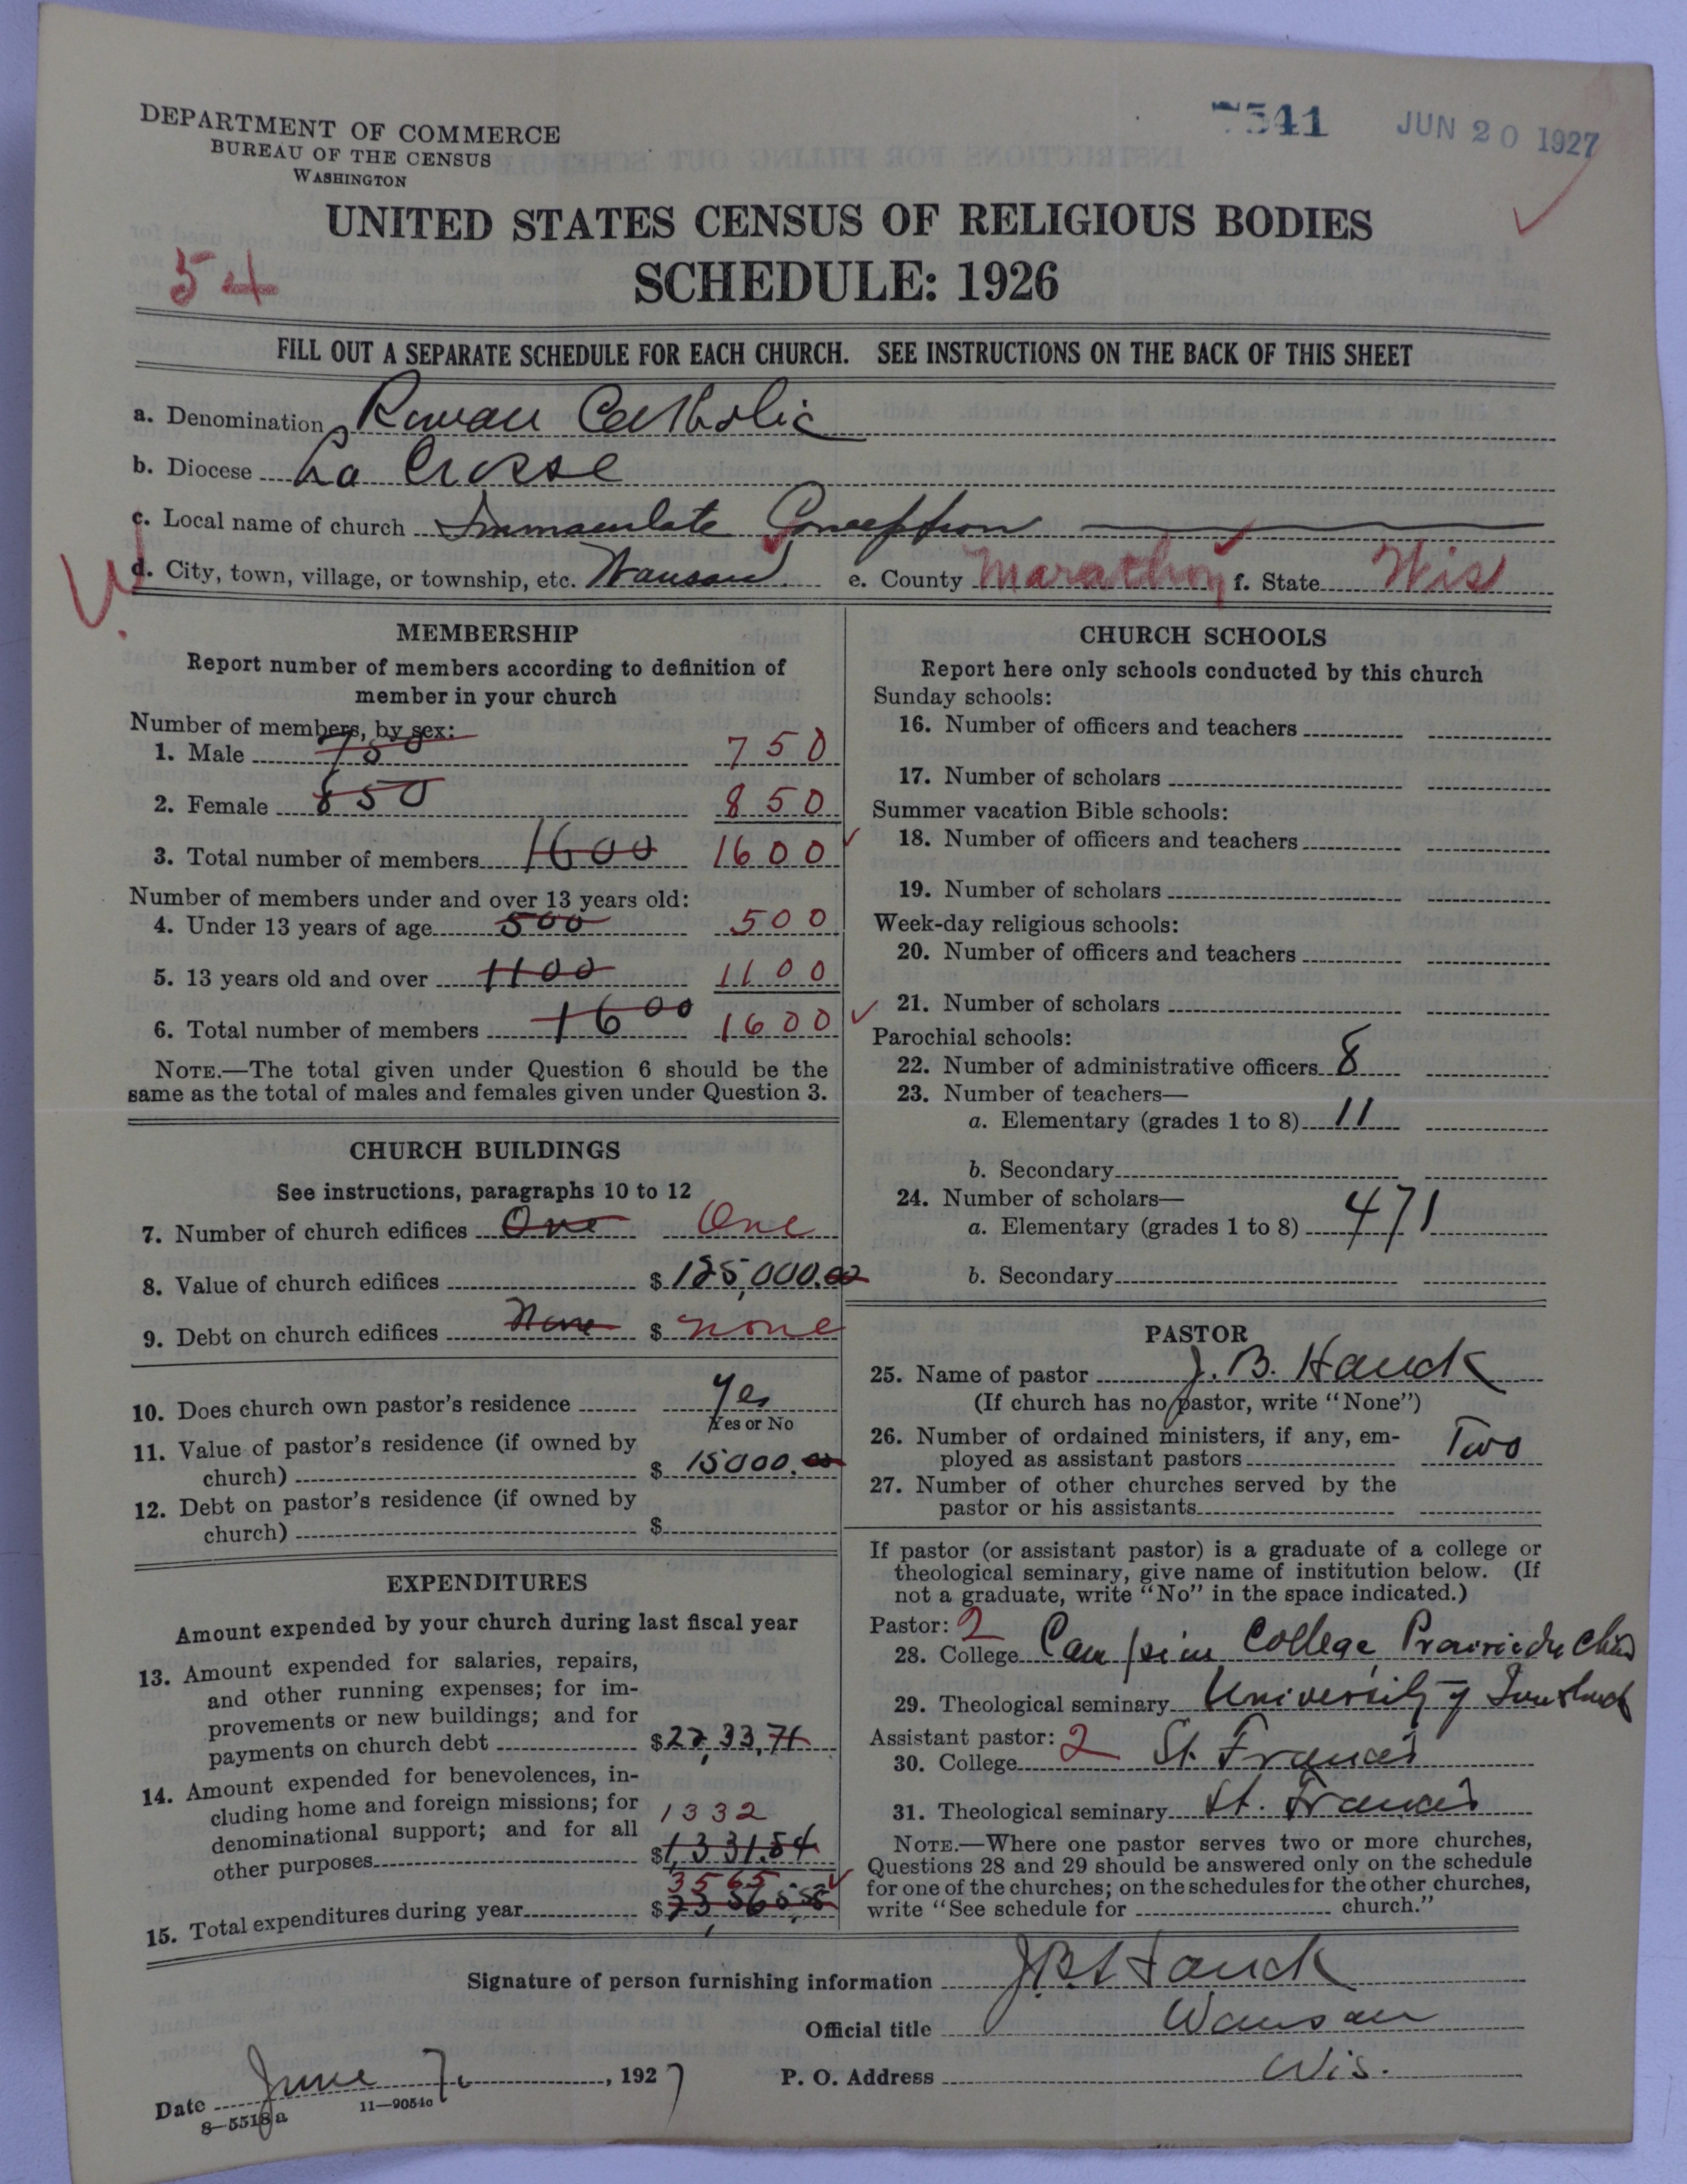 DEPARTMENT OF COMMERCE
BUREAU OF THE CENSUS
WASHINGTON
7541 JUN 20 1927
UNITED STATES CENSUS OF RELIGIOUS BODIES
54
SCHEDULE: 1926
FILL OUT A SEPARATE SCHEDULE FOR EACH CHURCH. SEE INSTRUCTIONS ON THE BACK OF THIS SHEET
a. Denomination Roman Catholic
b. Diocese La Crosse
c. Local name of church Immaculate Conception
d. City, town, village, or township, etc. Wausau e. County Marathon f. State Wis
MEMBERSHIP
Report number of members according to definition of
member in your church
Number of members, by sex:
1. Male 750 750
2. Female 850 850
3. Total number of members 1600 1600
Number of members under and over 13 years old:
4. Under 13 years of age 500 500
5. 13 years old and over 1100 1100
6. Total number of members 1600 1600
NOTE.—The total given under Question 6 should be the
same as the total of males and females given under Question 3.
CHURCH BUILDINGS
See instructions, paragraphs 10 to 12
7. Number of church edifices One One
8. Value of church edifices $ 125,000.00
9. Debt on church edifices None $ none
10. Does church own pastor's residence Yes
Yes or No
11. Value of pastor's residence (if owned by
church) $ 15000.00
12. Debt on pastor's residence (if owned by
church) $
EXPENDITURES
Amount expended by your church during last fiscal year
13. Amount expended for salaries, repairs,
and other running expenses; for im-
provements or new buildings; and for
payments on church debt $22,33,71
14. Amount expended for benevolences, in-
cluding home and foreign missions; for 1332
denominational support; and for all
other purposes $1,331.84
3565
15. Total expenditures during year $
CHURCH SCHOOLS
Report here only schools conducted by this church
Sunday schools:
16. Number of officers and teachers
17. Number of scholars
Summer vacation Bible schools:
18. Number of officers and teachers
19. Number of scholars
Week-day religious schools:
20. Number of officers and teachers
21. Number of scholars
Parochial schools:
22. Number of administrative officers 8
23. Number of teachers—
a. Elementary (grades 1 to 8) 11
b. Secondary
24. Number of scholars—
a. Elementary (grades 1 to 8) 471
b. Secondary
PASTOR
25. Name of pastor J. B. Hauck
(If church has no pastor, write "None")
26. Number of ordained ministers, if any, em-
ployed as assistant pastors Two
27. Number of other churches served by the
pastor or his assistants
If pastor (or assistant pastor) is a graduate of a college or
theological seminary, give name of institution below. (If
not a graduate, write "No" in the space indicated.)
Pastor: 2
28. College Campion College, Prairie du Chien
29. Theological seminary University of Innsbruck
Assistant pastor: 2
30. College St. Francis
31. Theological seminary St. Francis
NOTE.—Where one pastor serves two or more churches,
Questions 28 and 29 should be answered only on the schedule
for one of the churches; on the schedules for the other churches,
write "See schedule for church."
Signature of person furnishing information J. B. Hauck
Official title Wausau
Date June 7, 1927 P. O. Address Wis.
8—5518a 11—9054a